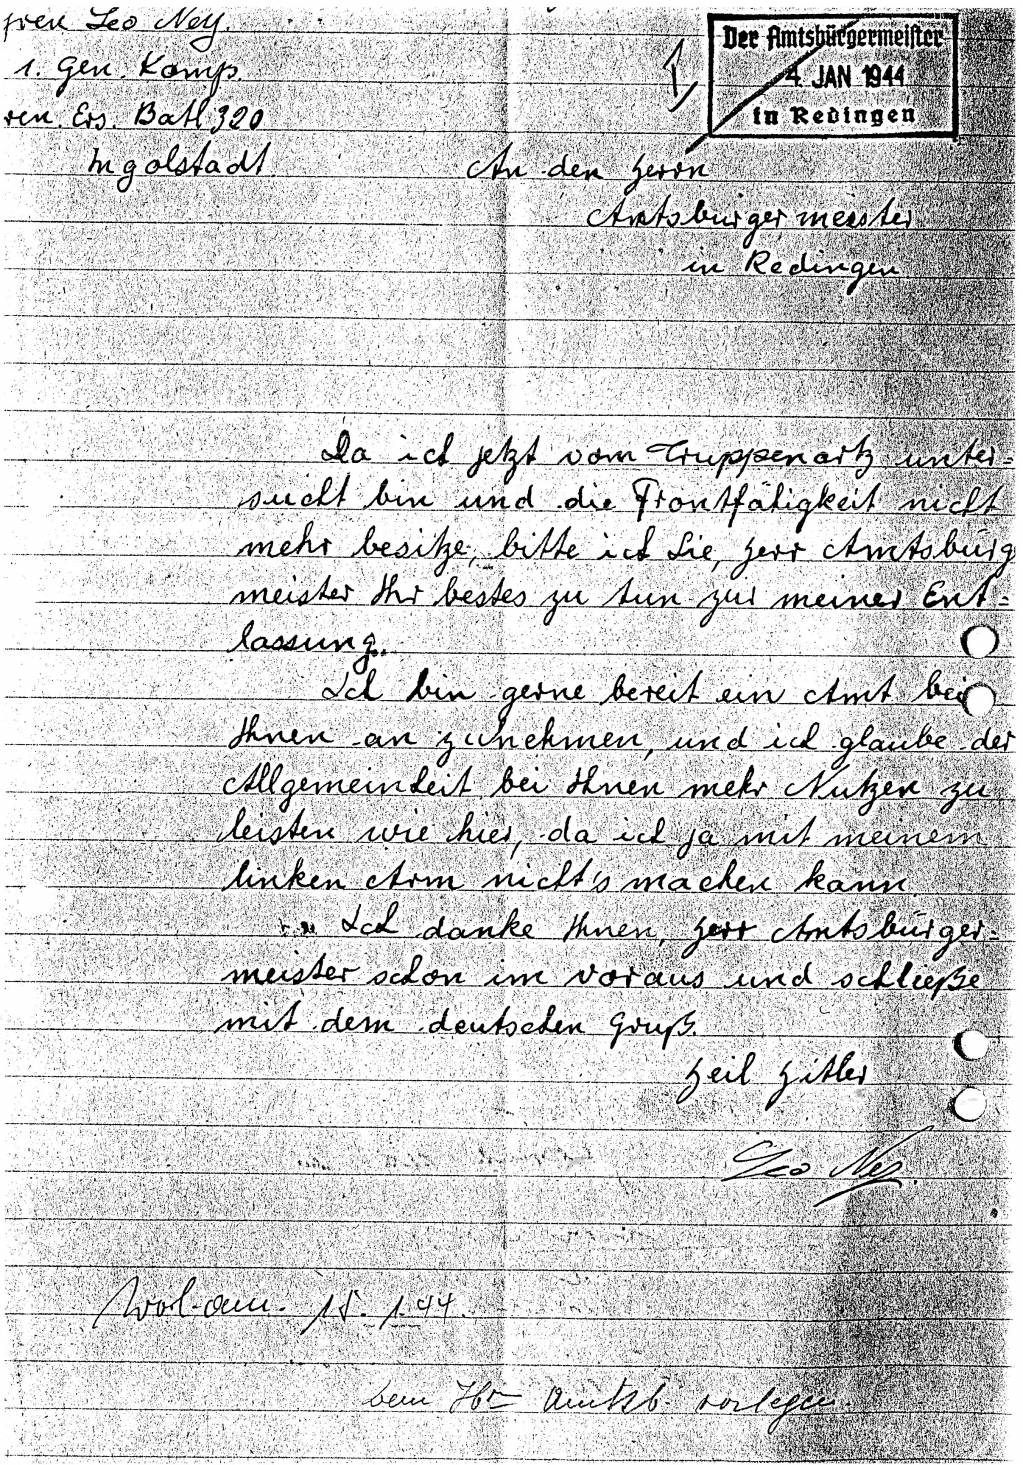 Gren Leo Ney.
1. Gen. Komp.
Gren. Ers. Batl 320
Ingolstadt
Der Amtsbürgermeister
4. JAN 1944
in Redingen
An den Herrn
Amtsbürgermeister
in Redingen
Da ich jetzt vom Truppenartz unter=
sucht bin und die Frontfähigkeit nicht
mehr besitze, bitte ich Sie, Herr Amtsbürg
meister Ihr bestes zu tun zur meiner Ent=
lassung.
Ich bin gerne bereit ein Amt bei
Ihnen an zunehmen, und ich glaube der
Allgemeinheit bei Ihnen mehr Nutzen zu
leisten wie hier, da ich ja mit meinem
linken Arm nicht's machen kann.
Ich danke Ihnen, Herr Amtsbürger=
meister schon im voraus und schließe
mit dem deutschen Gruß.
Heil Hitler
Leo Ney.
15. 1. 44.
Amtsb. vorlegen